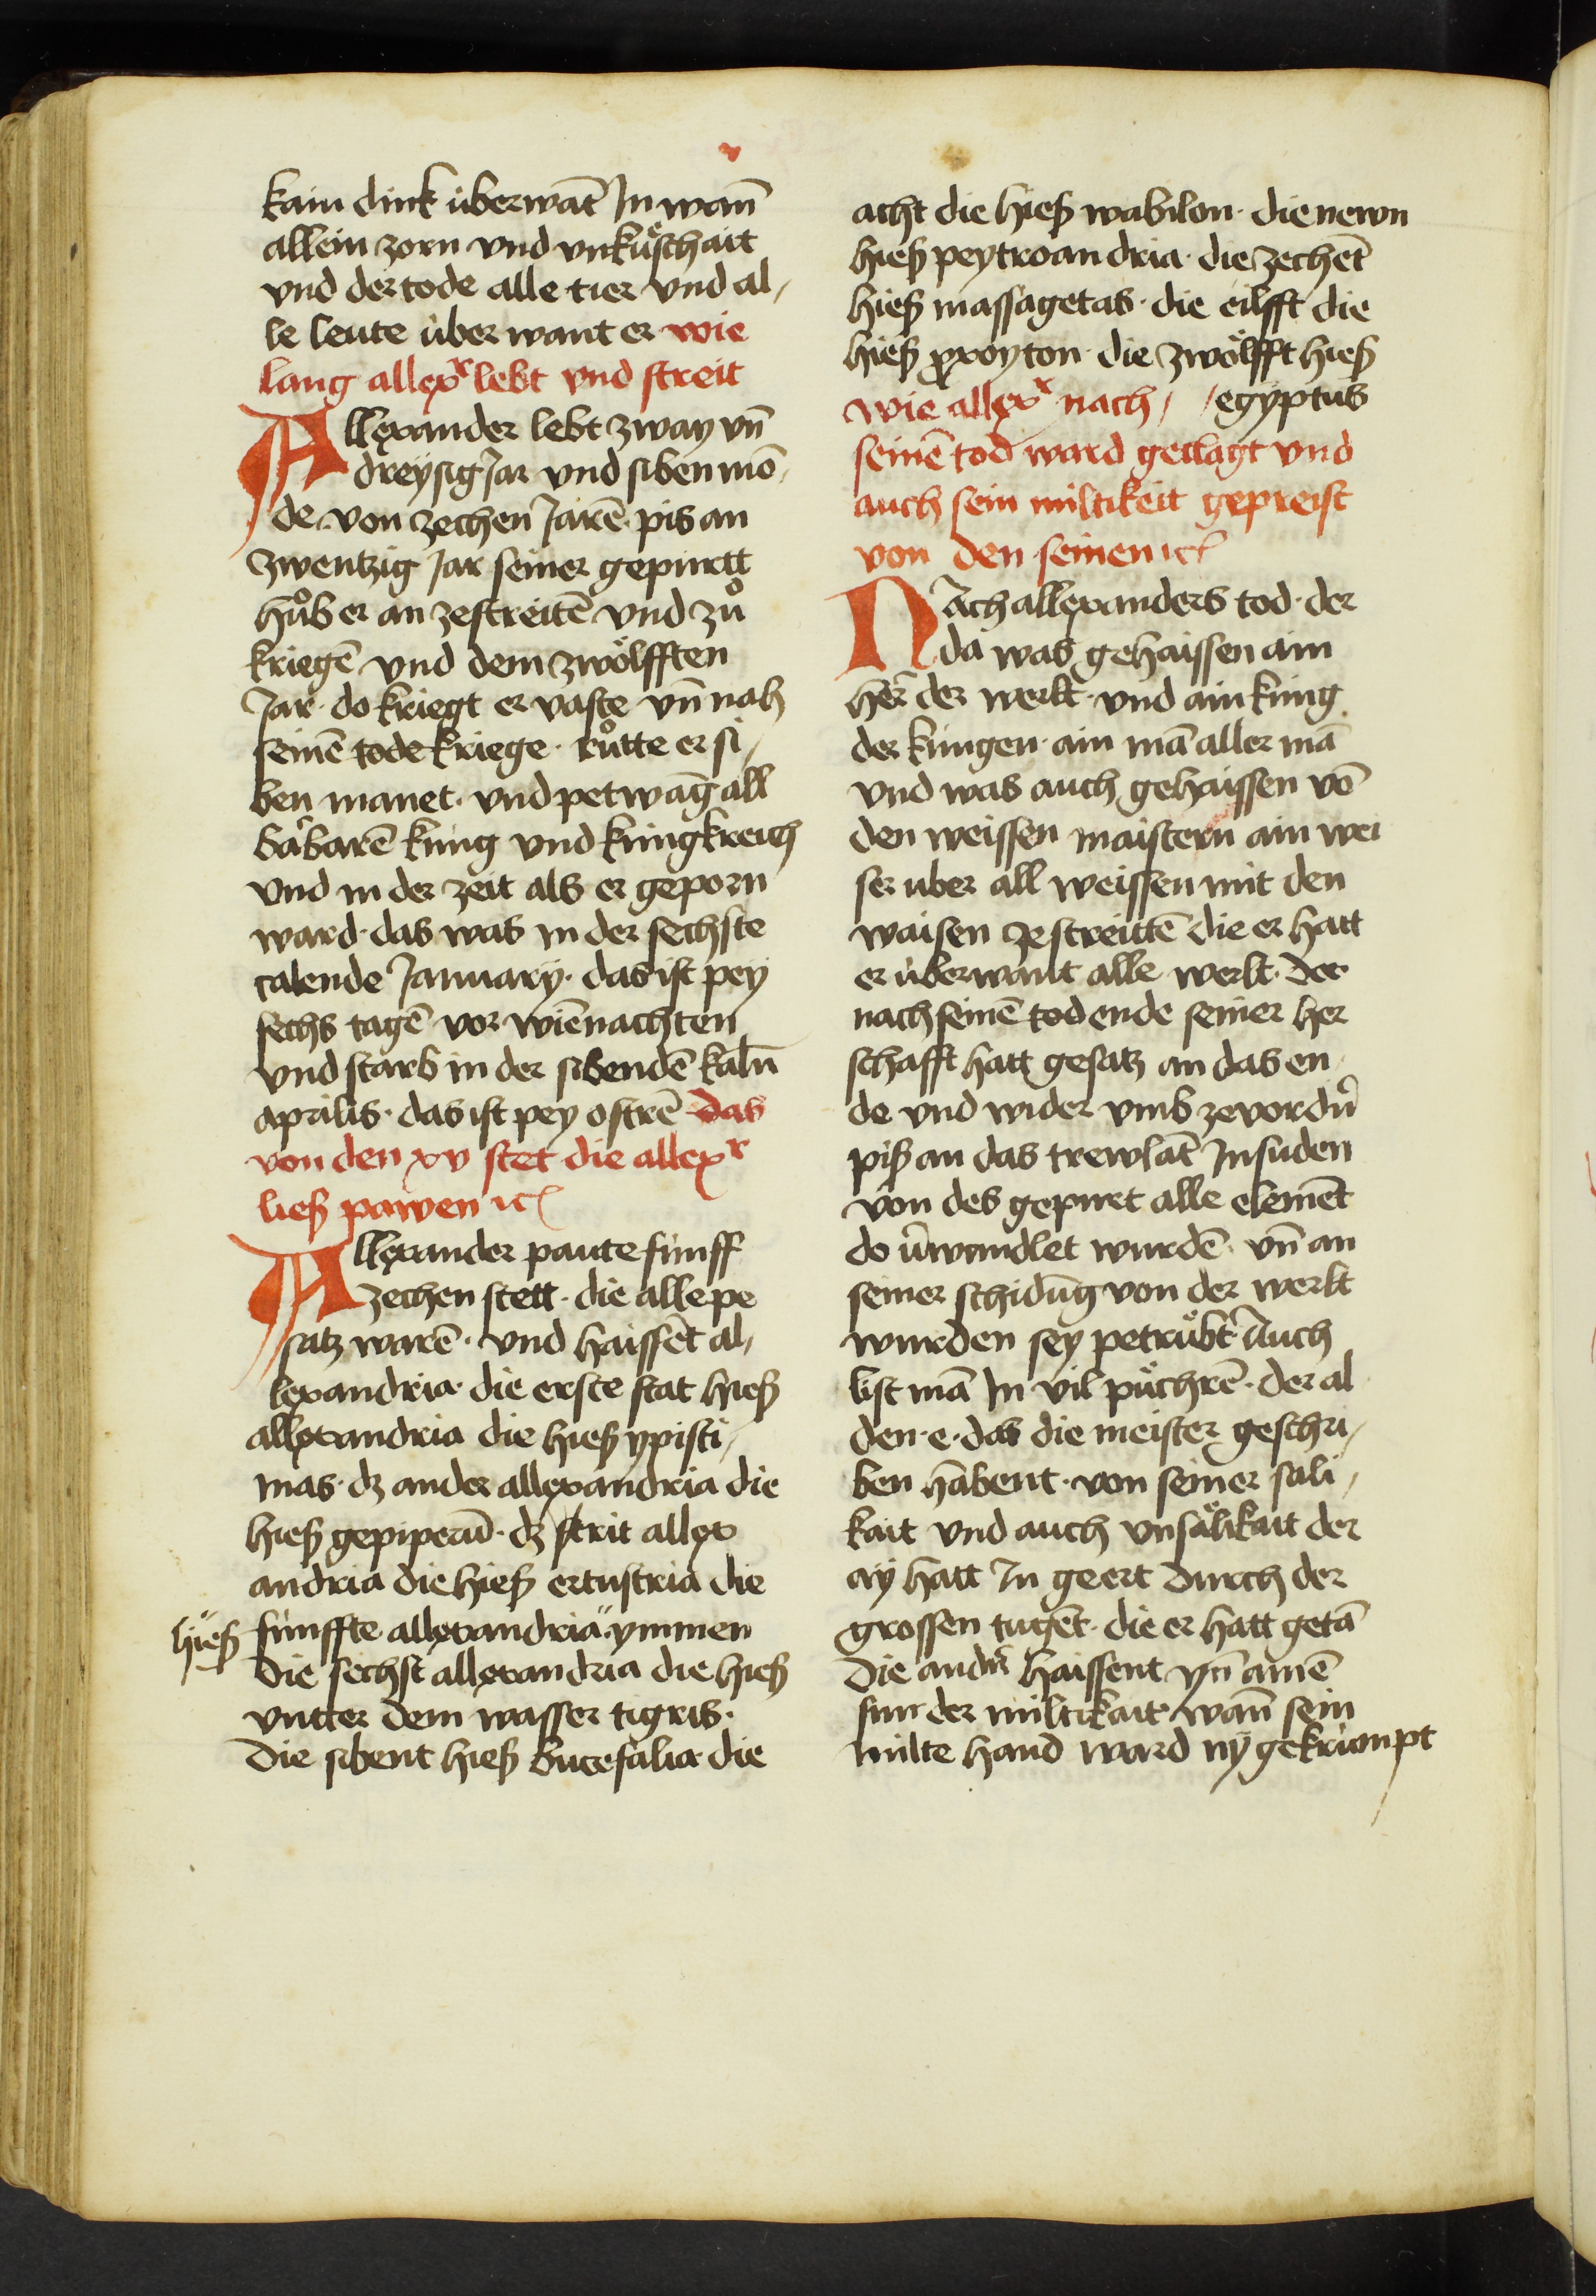 kain dink überwāt Jn wan̄
allein zorn vnd vnkuͤschait
vnd der tode alle tier vnd al⸗
le leute über want er wie
lang allexͬ lebt vnd streit
Allexander lebt zway vn̄
dreysig Jar vnd siben mō⸗
de von zechen Jarē pis an
zwentzig Jar seiner gepurtt
huͦb er an zestreitē vnd zuͦ
kriegē vnd dem zwoͤlfften
Jar · do kriegt er vaste vn̄ nah
seinē tode kriege · ruͦtte er si⸗
ben manet · vnd petwāg all
barbarē kung vnd kungkreich
vnd in der zeit als er geporn
ward · das was in der sechste
calende January · das ist pey
sechs tagē vor wiēnachten
vnd starb in der sibendē kaln̄
aprilis · das ist pey ostrē das
von den xv stet die allexͬ
liesß pawen ꝛc
Allexander paute fünff
zechen stett · die alle pe
satz warē · vnd haissēt al⸗
lexandria · die erste stat hieß
allexandria die hieß ypisti⸗
mas · dz ander allexandria die
hieß gepiperū · dz strit allex
andria die hieß ertustria die
hieß fünffte allexandria " ymmen
die sechst allexandria die hieß
vntter dem wasser tigris ·
die sibent hieß bucefalia die
acht die hieß wabilon · die newn
hieß peytroandria · die zechēt
hieß massagetas · die eilfft die
hieß pxoyton · die zwoͤlfft hieß
wie allexͬ nach // egyptus
seinē tod ward geclagt vnd
auch sein miltikeit gepreist
von den seinen ꝛc
Nach allexanders tod · der
da was gehaissen ain
her̄ der werlt · vnd ain kung
der kungen · ain mā aller mā
vnd was auch gehaissen vō
den weissen maistern ain wei
ser uber all weissen mit den
waisen zestreittē die er hatt
er überwant alle werlt · der
nach seinē tod ende seiner her
schafft hatt gesatz an das en
de vnd wider vmb zevordn̄
piß an das trewlāt Jn suden
von des gepurt alle elemēt
do v̄wandlet wurdē · vn̄ an
seiner schidūg von der werlt
wurden sey petruͤbt Auch
list mā Jn vil puͤchrē · der al
den · e · das die meister geschri⸗
ben habent · von seiner sali⸗
kait vnd auch vnsaͤlikait der
ay hatt Jn geert durch der
grossen tugēt · die er hatt getā
die andn̄ haissent yn̄ ainē
sun der miltikait · wan̄ sein
milte hand ward ny gekrümpt